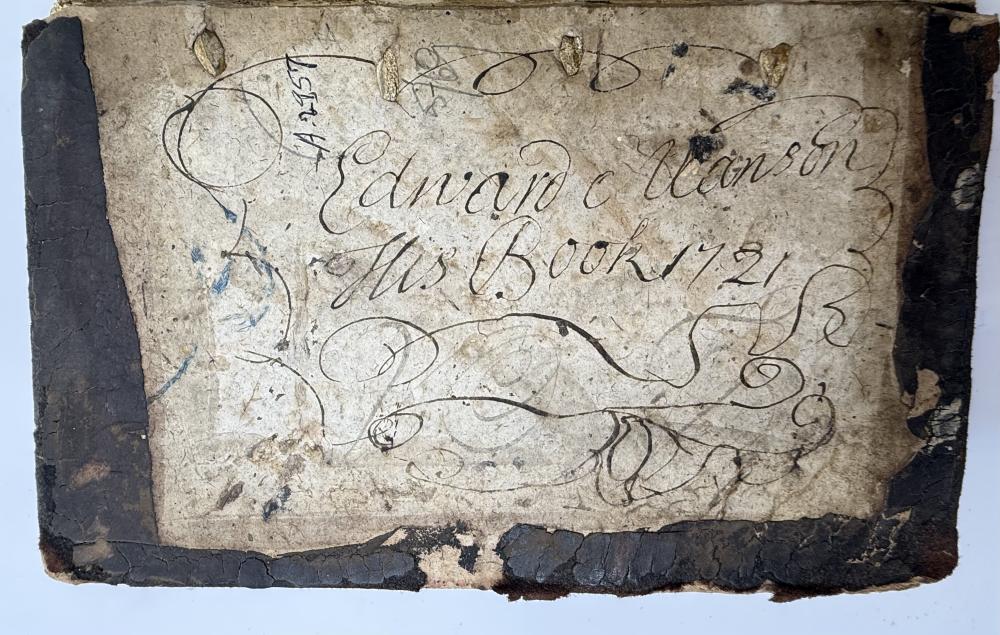 Edward Hanson
His Book 1721